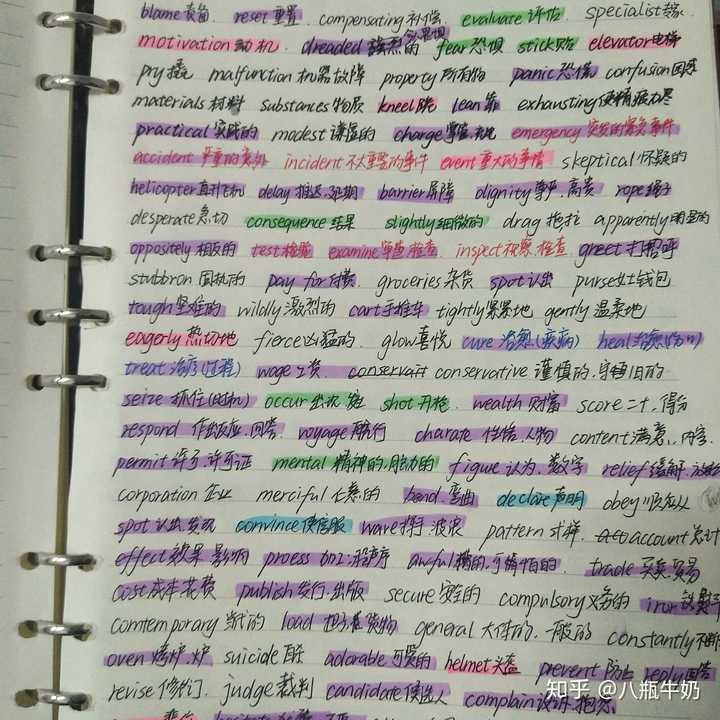 blame 责备. reset 重置. compensating 补偿. evaluate 评估. specialist 专家.
motivation 动机. dreaded 的 fear 恐惧 stick 贴 elevator 电梯
pry 撬 malfunction 机器故障 property 所有物 panic 恐慌 confusion 困惑
materials 材料 substances 物质 kneel 跪 lean 靠 exhausting 使精疲力尽
practical 实践的 modest 谦虚的 charge emergency 突发的紧急事件
accident 严重的意外 incident 不太重要的事件 event 重大的事情 skeptical 怀疑的
helicopter 直升飞机 delay 推迟.延期 barrier 屏障 dignity 尊严.高贵 rope 绳子
desperate 急切 consequence 结果 slightly 细微的 drag 拖拉 apparently 明显的
oppositely 相反的 test 检验 examine 审查检查. inspect 视察.检查 greet 打招呼
stubbron 固执的 pay for 付费. groceries 杂货 spot 认出 purse 女士钱包
tough 坚难的 wildly 激烈的 cart 手推车 tightly 紧紧地 gently 温柔地
eagerly 热切地 fierce 凶猛的. glow 喜悦 cure 治愈(疾病) heal 治愈
treat 治疗(过程) wage 工资. conservative 谨慎的.守旧的
seize 抓住(时机) occur 出现 shot 开枪. wealth 财富 score 二十.得分
respond 作出反应.回答 voyage 航行 charate 性格.人物 content 满意.内容.
permit 许可.许可证 mental 精神的.脑力的 figure 认为.数字 relief 缓解.
corporation 企业 merciful 仁慈的 bend 弯曲 declare 声明 obey 服从
spot 认出发现 convince 使信服 wave 挥手.波浪 pattern 式样. account 总计
effect 效果 影响 proess 加工.程序 awful 糟的.可怕的. trade 买卖.贸易
cost 成本 花费 publish 发行.出版 secure 安全的 compulsory 义务的 iron
comtemporary 当代的 load general 大体的.一般的 constantly 不断
oven 烤炉.炉 suicide 自杀 adorable 可爱的 helmet 头盔 prevent 防止 reply 回答
revise 修订. judge 裁判 candidate 候选人 complain 投诉.抱怨.
知乎 @八瓶牛奶